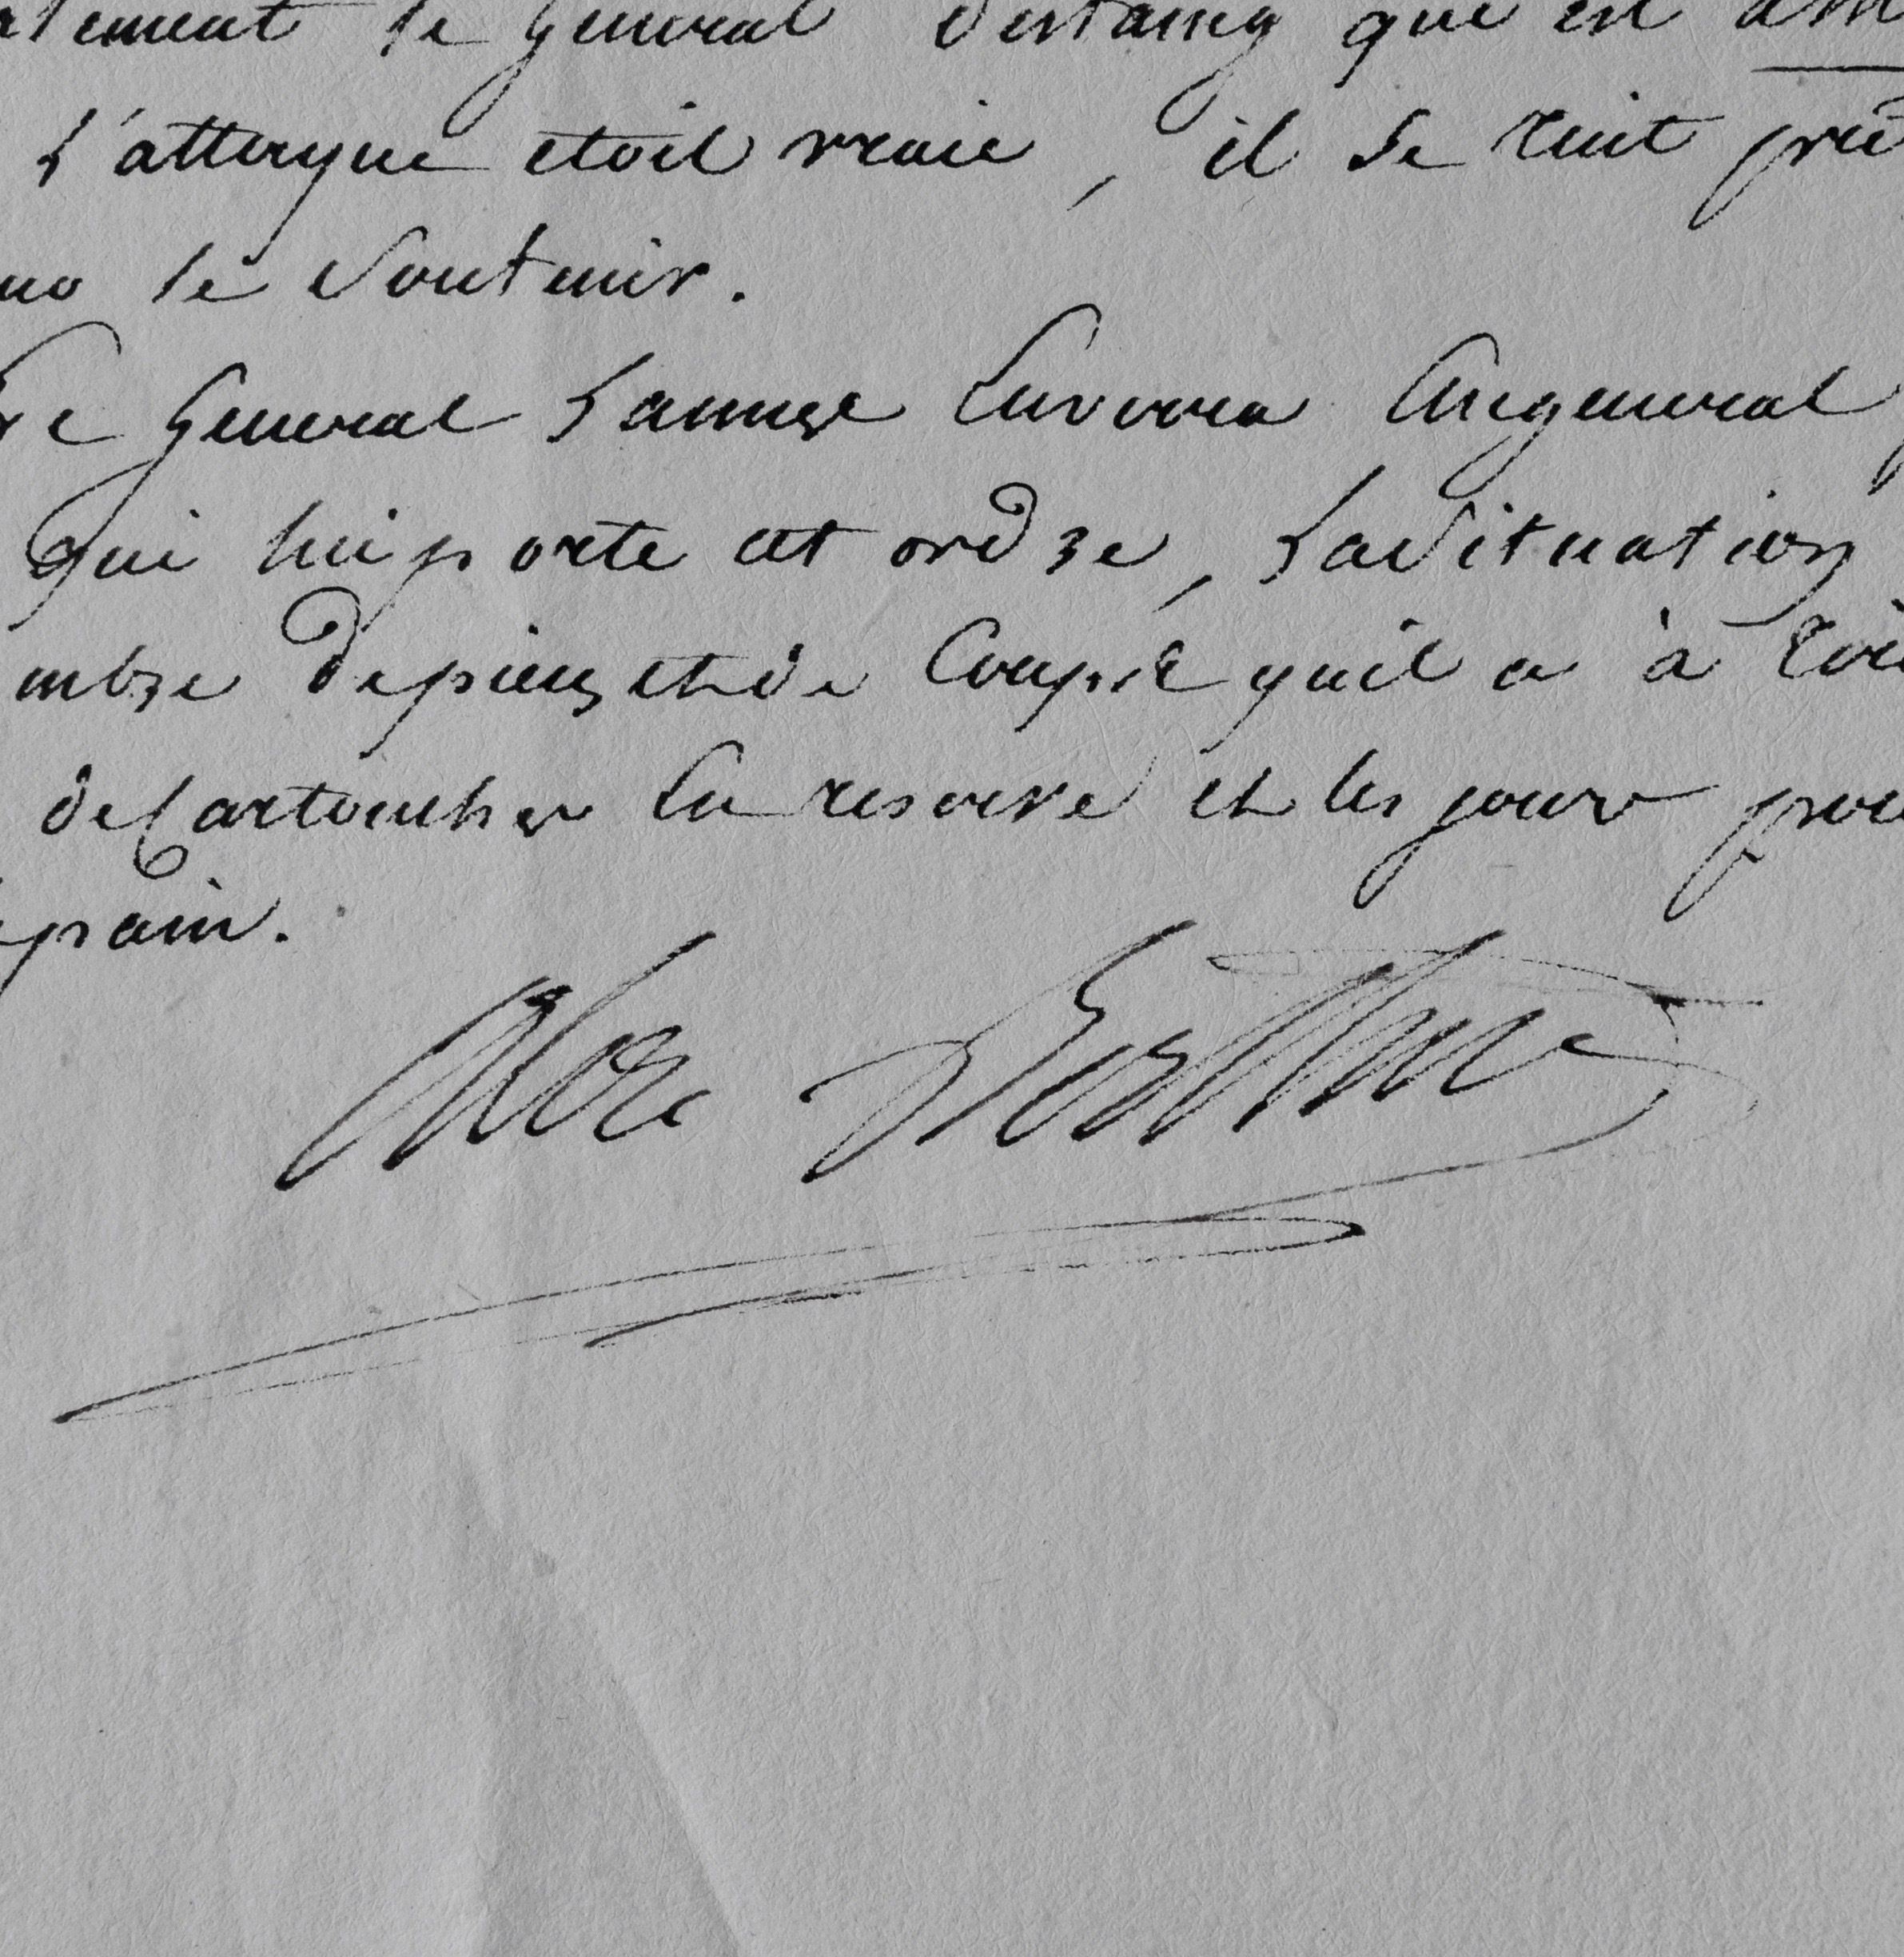 le General Destaing que est
L'attaque etoit vraie, il se tint pret
le Soutenir.
Le General Lannes Envoira Augeneral
qui lui porte cet ordre, La Situation
ombre de pieces et de Coups quil a à
de Cartouches En reserve et les jours pour
pain.
Alex Berthier